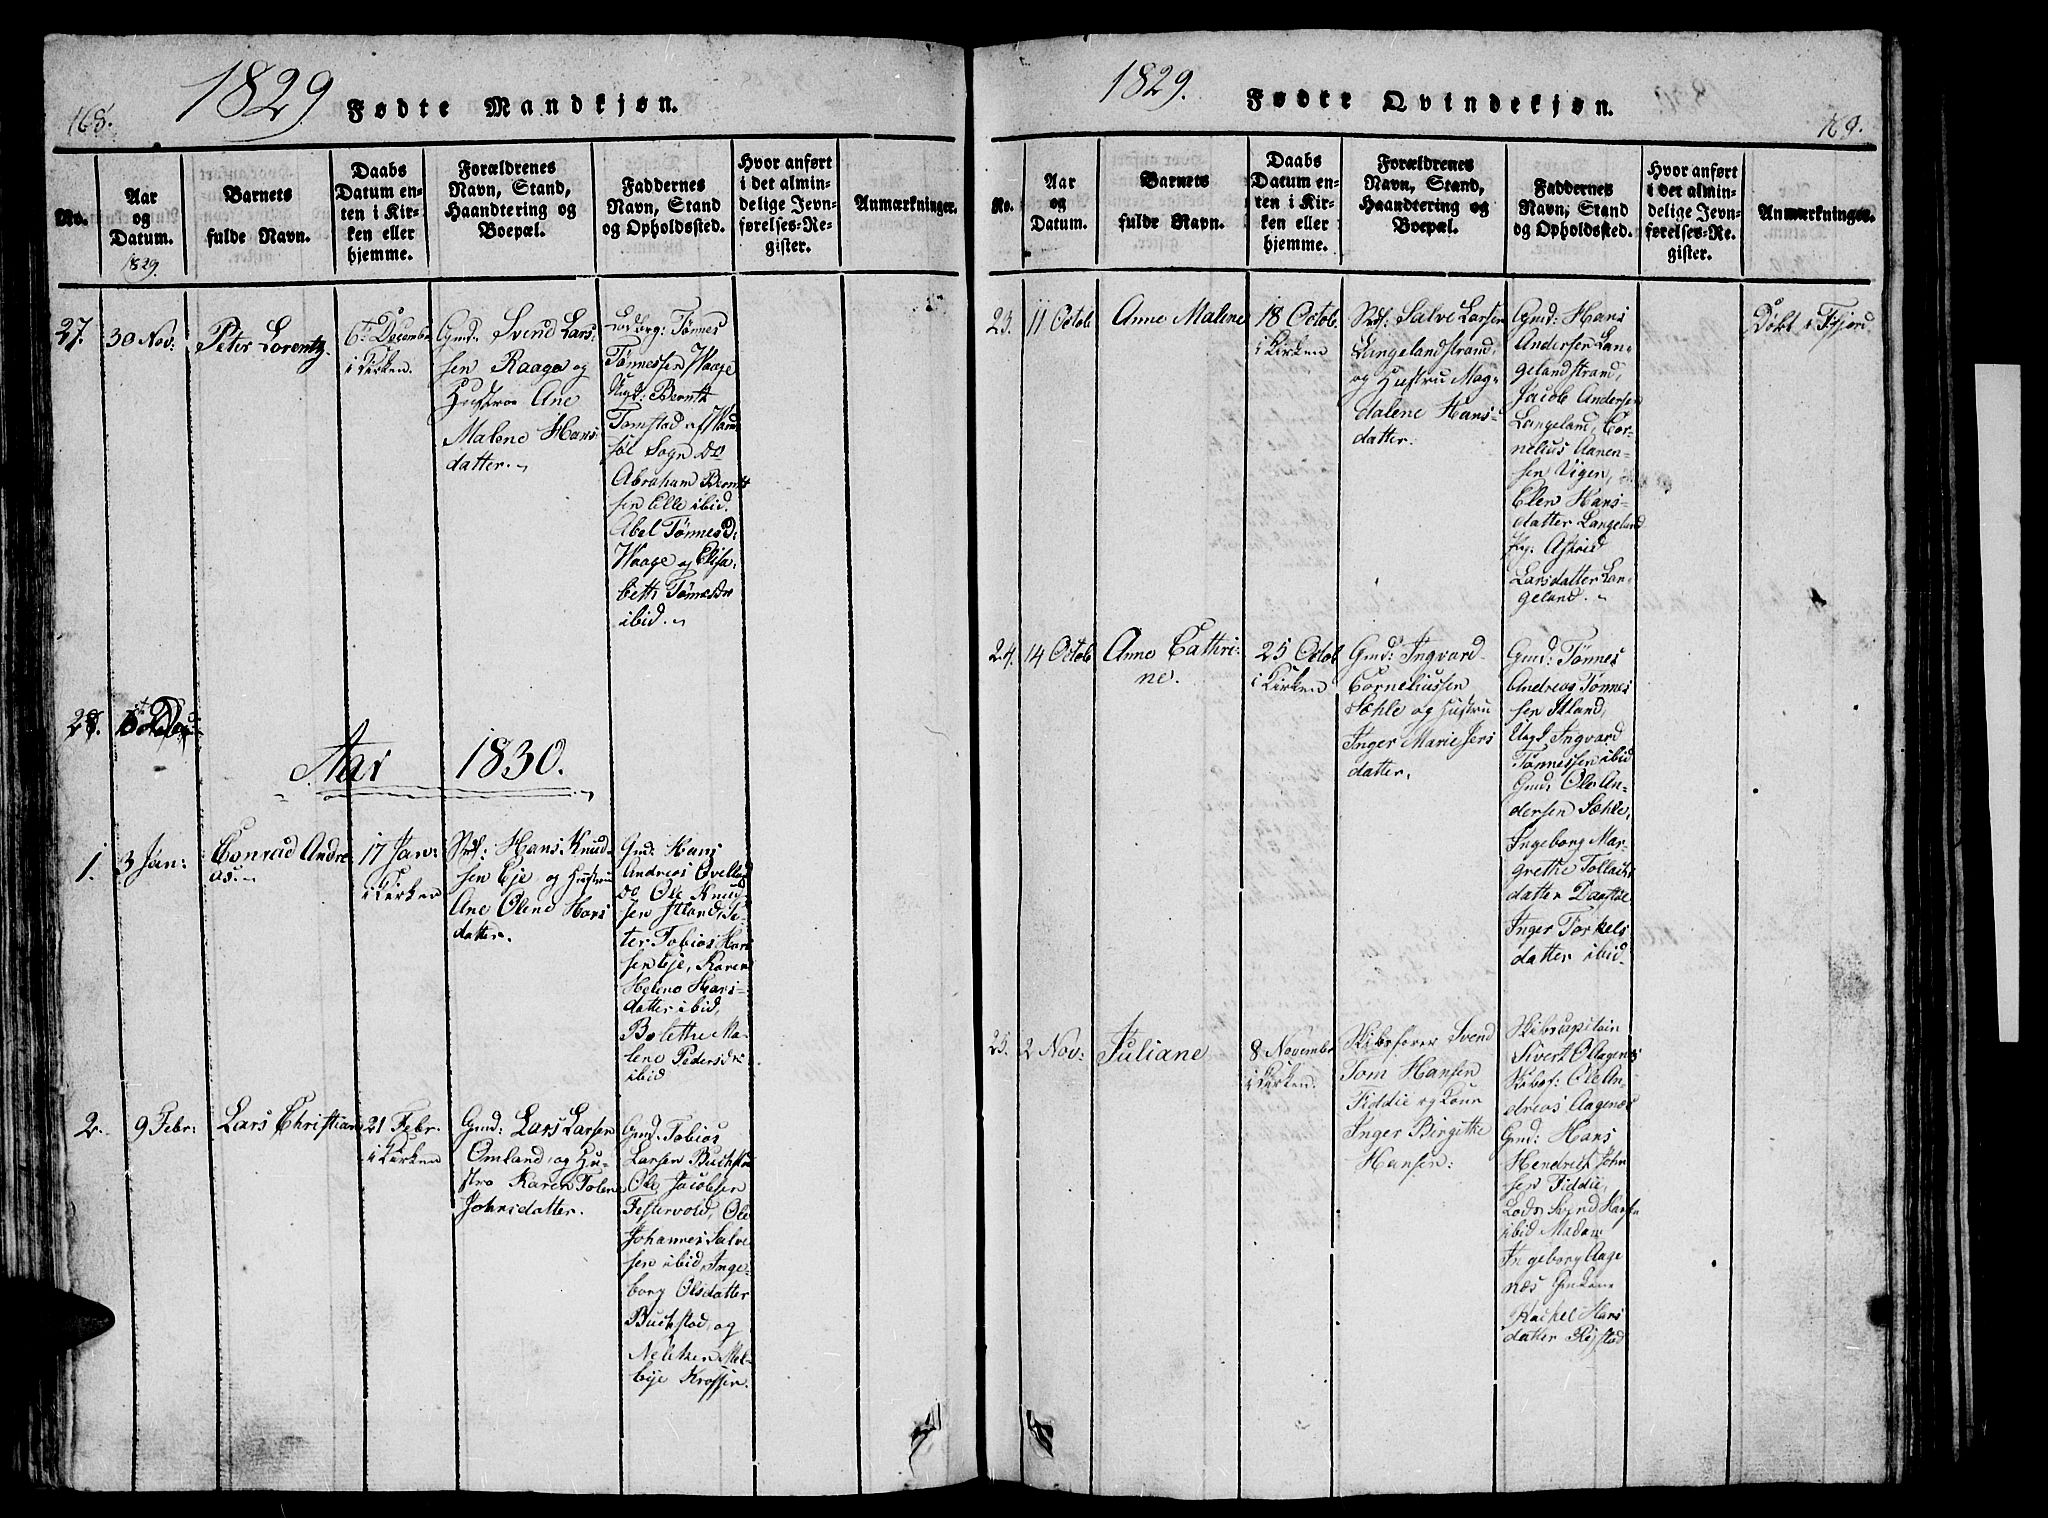 168.
1829 Fødte Mandkjøn.
No.
Aar
og
Datum.
1829.
Barnets
fulde Navn.
Daabs
Datum en-
ten i Kir-
ken eller
hjemme.
Forældrenes
Navn, Stand,
Haandtering og
Boepæl.
Faddernes
Navn, Stand
og Opholdssted.
Hvor anført
i det almin-
delige Jevn-
førelses-Re-
gister.
Anmærkninger.
27.
30 Nov:
Peter Lorentz.
6te Decembr
i Kirken.
Gmd. Svend Lars-
sen Raage og
Hustroe Ane
Malene Hans
datter.
Tønnes
Tønnessen Waage
Ungd: Bernth
Tomstad af
Sogn do
Abraham Bernt
sen Elle ibid.
Abel Tønnesd:
Waage og Elisa-
beth Tønnesdr
ibid.
28.
Aar 1830.
1.
3 Jan:
Conrad Andre
as.
17 Jan:
i Kirken
Hans Knud-
sen Eje og Hustrue
Ane Olene Hans
datter.
Gmd: Hans
Andreas Øvelland
do Ole Knud
sen Itland, Pe-
ter Tobias Han
sen Eje, Karen
Helene Hans-
datter ibid,
Bolethe Ma-
lene Pedersdr
ibid
2.
9 Febr:
Lars Christian
21 Febr.
i Kirken
Gmd: Lars Larsen
Omland, og Hu-
stro Karen Tolene
Johnsdatter.
Gmd. Tobias
Larsen Buchstad
Ole Jacobsen
Festervold, Ole
Johannes Salve
sen ibid, Inge-
borg Olsdatter
Buchstad, og
Mel-
bye
1829. Fødte Qvindekjøn.
169.
No.
Aar
og
Datum.
Barnets
fulde Navn.
Daabs
Datum en-
ten i Kir-
ken eller
hjemme.
Forældrenes
Navn, Stand,
Haandtering og
Boepæl.
Faddernes
Navn, Stand
og Opholdssted.
Hvor anført
i det almin-
delige Jevn-
førelses-Re-
gister.
Anmærkninger.
23.
11 Octob
Anne Malene
18 Octob.
i Kirken
Salve Larsen
Langelandstrand,
og Hustru Mag-
dalene Hans-
datter.
Gmd: Hans
Andersen Lan-
gelandstrand,
Jacob Andersen
Langeland, Cor-
nelius Aanen-
sen Vigen,
Elen Hans-
datter Langeland
Astrid
Larsdatter Lan-
geland.
Døbt i Fjord
24.
14 Octob
Anne Cathri-
ne.
25 Octob
i Kirken
Gmd: Ingvard
Corneliussen
Sæhle og Hustru
Inger Marie Jens
datter.
Gmd: Tønnes
Andreas Tønnes
sen Itland,
Ungd Ingvard
Tønnessen ibid
Gmd: Ole An-
dersen Sæhle,
Ingeborg Mar-
grethe Tollachs
datter
Inger Torkels
datter ibid.
25.
2 Nov:
Juliane
8 Novembr
i Kirken.
Skibsfører Svend
Tom Hansen
Fiddie og Kone
Inger Birgitte
Hansen:
Skibscapitain
Sivert O Aagenes
Ole An-
dreas Aagenæs
Gmd: Hans
Hendrich John
sen Fiddie,
Lods Svend Hansn
ibid Madam
Ingeborg Aage
næs
Rachel Hans
datter Rystad